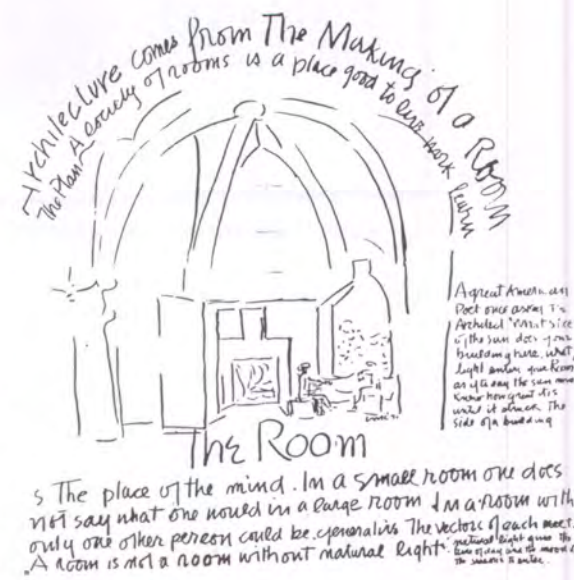 Architecture comes from The Making of a Room
The Plan A society of rooms is a place good to live work learn
A great American
Poet once asked The
Architect 'What slice
of the sun does your
building have. What
light enters your Room
as if to say the sun never
knew how great it is
until it struck the
side of a building
The Room
s The place of the mind. In a small room one does
not say what one would in a large room In a room with
only one other person could be generative The vectors of each meet.
A room is not a room without natural light. natural light gives the
time of day and the mood of
the seasons to enter.